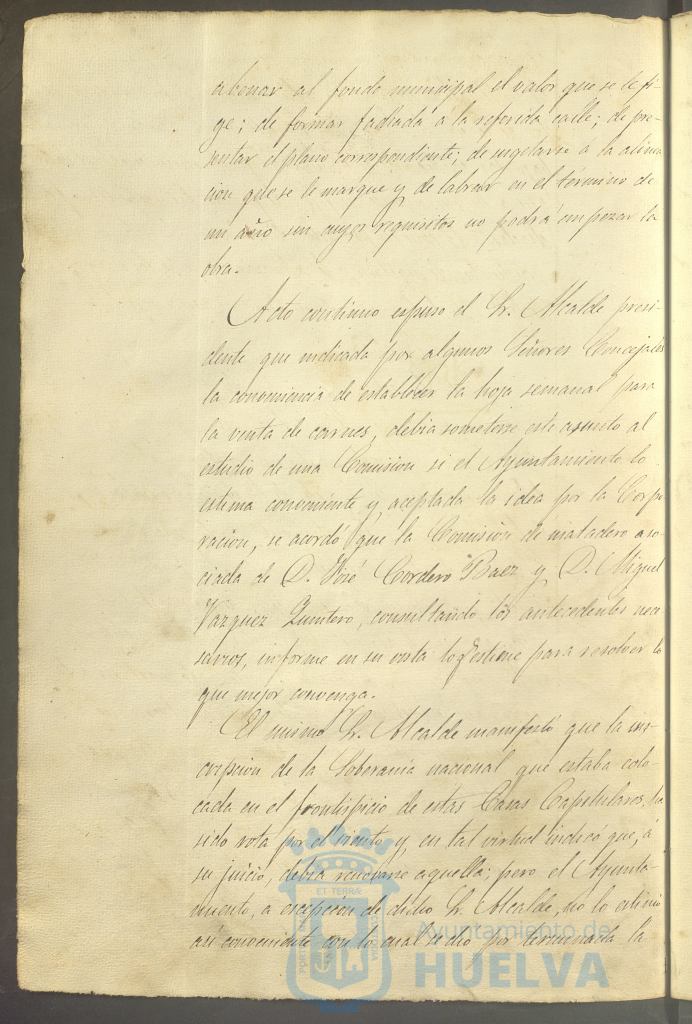 abonar al fondo municipal el valor que se le fi-
ge; de formar fachada a la referida calle; de pre-
sentar el plano correspondiente; de sugetarse a la alinea
cion que se le marque y de labrar en el término de
un año sin cuyos requisitos no podrá empezar la
obra.
Acto continuo espuso el Sr. Alcalde presi-
dente que indicada por algunos Señores Concejales
la conveniencia de establecer la hoja semanal para
la venta de carnes, debia someterse este asunto al
estudio de una Comision si el Ayuntamiento lo
estima conveniente y aceptada la idea por la Corpo
racion, se acordó que la Comision de matadero aso-
ciada de D. José Cordero Baez y D. Miguel
Vazquez Quintero, consultando los antecedentes nece
sarios, informe en su vista lo q estime para resolver lo
que mejor convenga.
El mismo Sr. Alcalde manifestó que la ins-
cripcion de la Soberania nacional que estaba colo-
cada en el frontispicio de estas Casas Capitulares, ha
sido rota por el viento y, en tal virtud indicó que, á
su juicio, debia renovarse aquella; pero el Ayunta-
miento, a escepcion de dicho Sr. Alcalde, no lo estimó
así conveniente con lo cual se dió por terminada la
ET TERRÆ
Ayuntamiento de
HUELVA